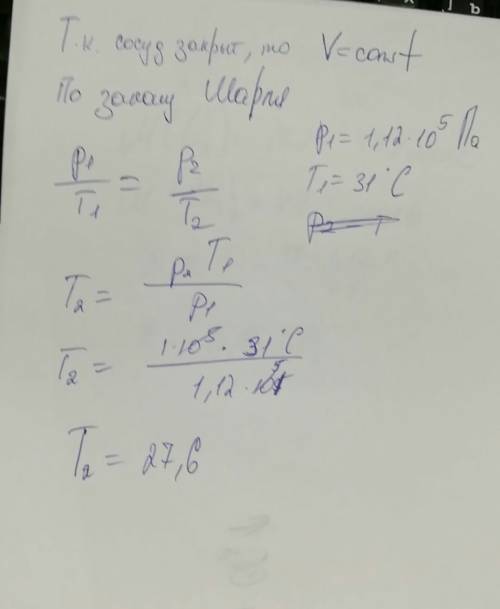 Т.к. сосуд закрыт, то V=const
По закону Шарля
p1/T1 = p2/T2
p1 = 1,12·10⁵ Па
T1 = 31°C
T2 = p2 T1/p1
T2 = 1·10⁵ · 31°C/1,12·10⁵
T2 = 27,6